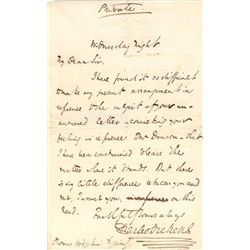 Private
Wednesday Night
My Dear Sir.
I have found it so difficult
to make any present arrangement in
reference to the subject of your un-
answered letter concerning your
in reference that
I have been constrained to leave the
matter where it stands. But there is
very little difference between you and
me, I assure you, on this
head.
Faithfully Yours always
Charles Dickens
Thomas